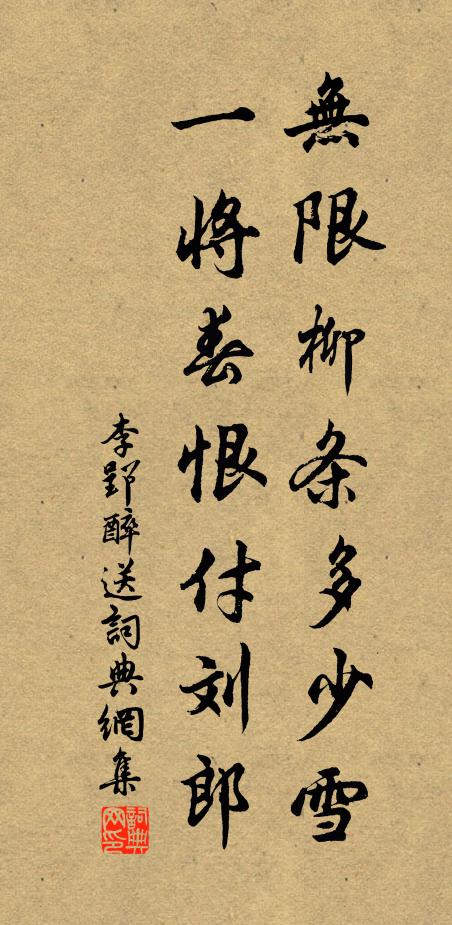 無限柳条多少雪
一将春恨付刘郎
李郢醉送詞典網集
詞典網印